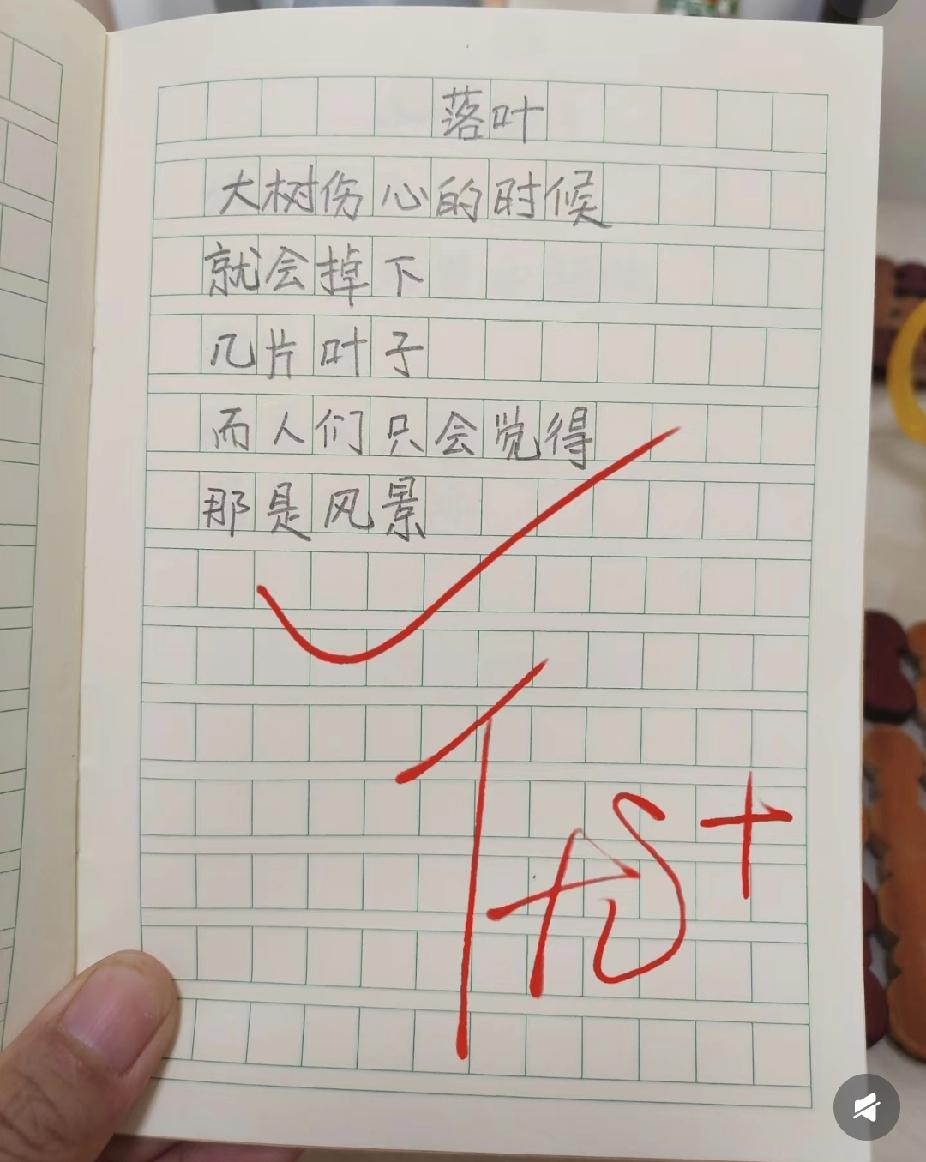 落叶
大树伤心的时候
就会掉下
几片叶子
而人们只会觉得
那是风景